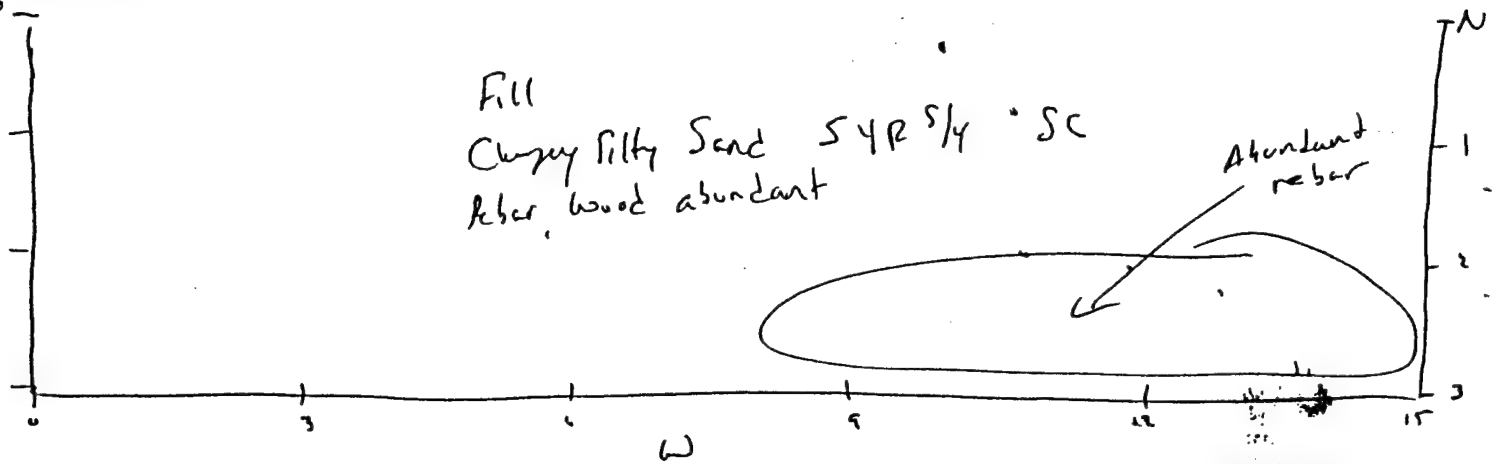 N
Fill
Clayey Silty Sand 5YR 5/4 SC
Rebar, wood abundant
Abundant
rebar
1
2
3
0 3 6 9 12 15
W